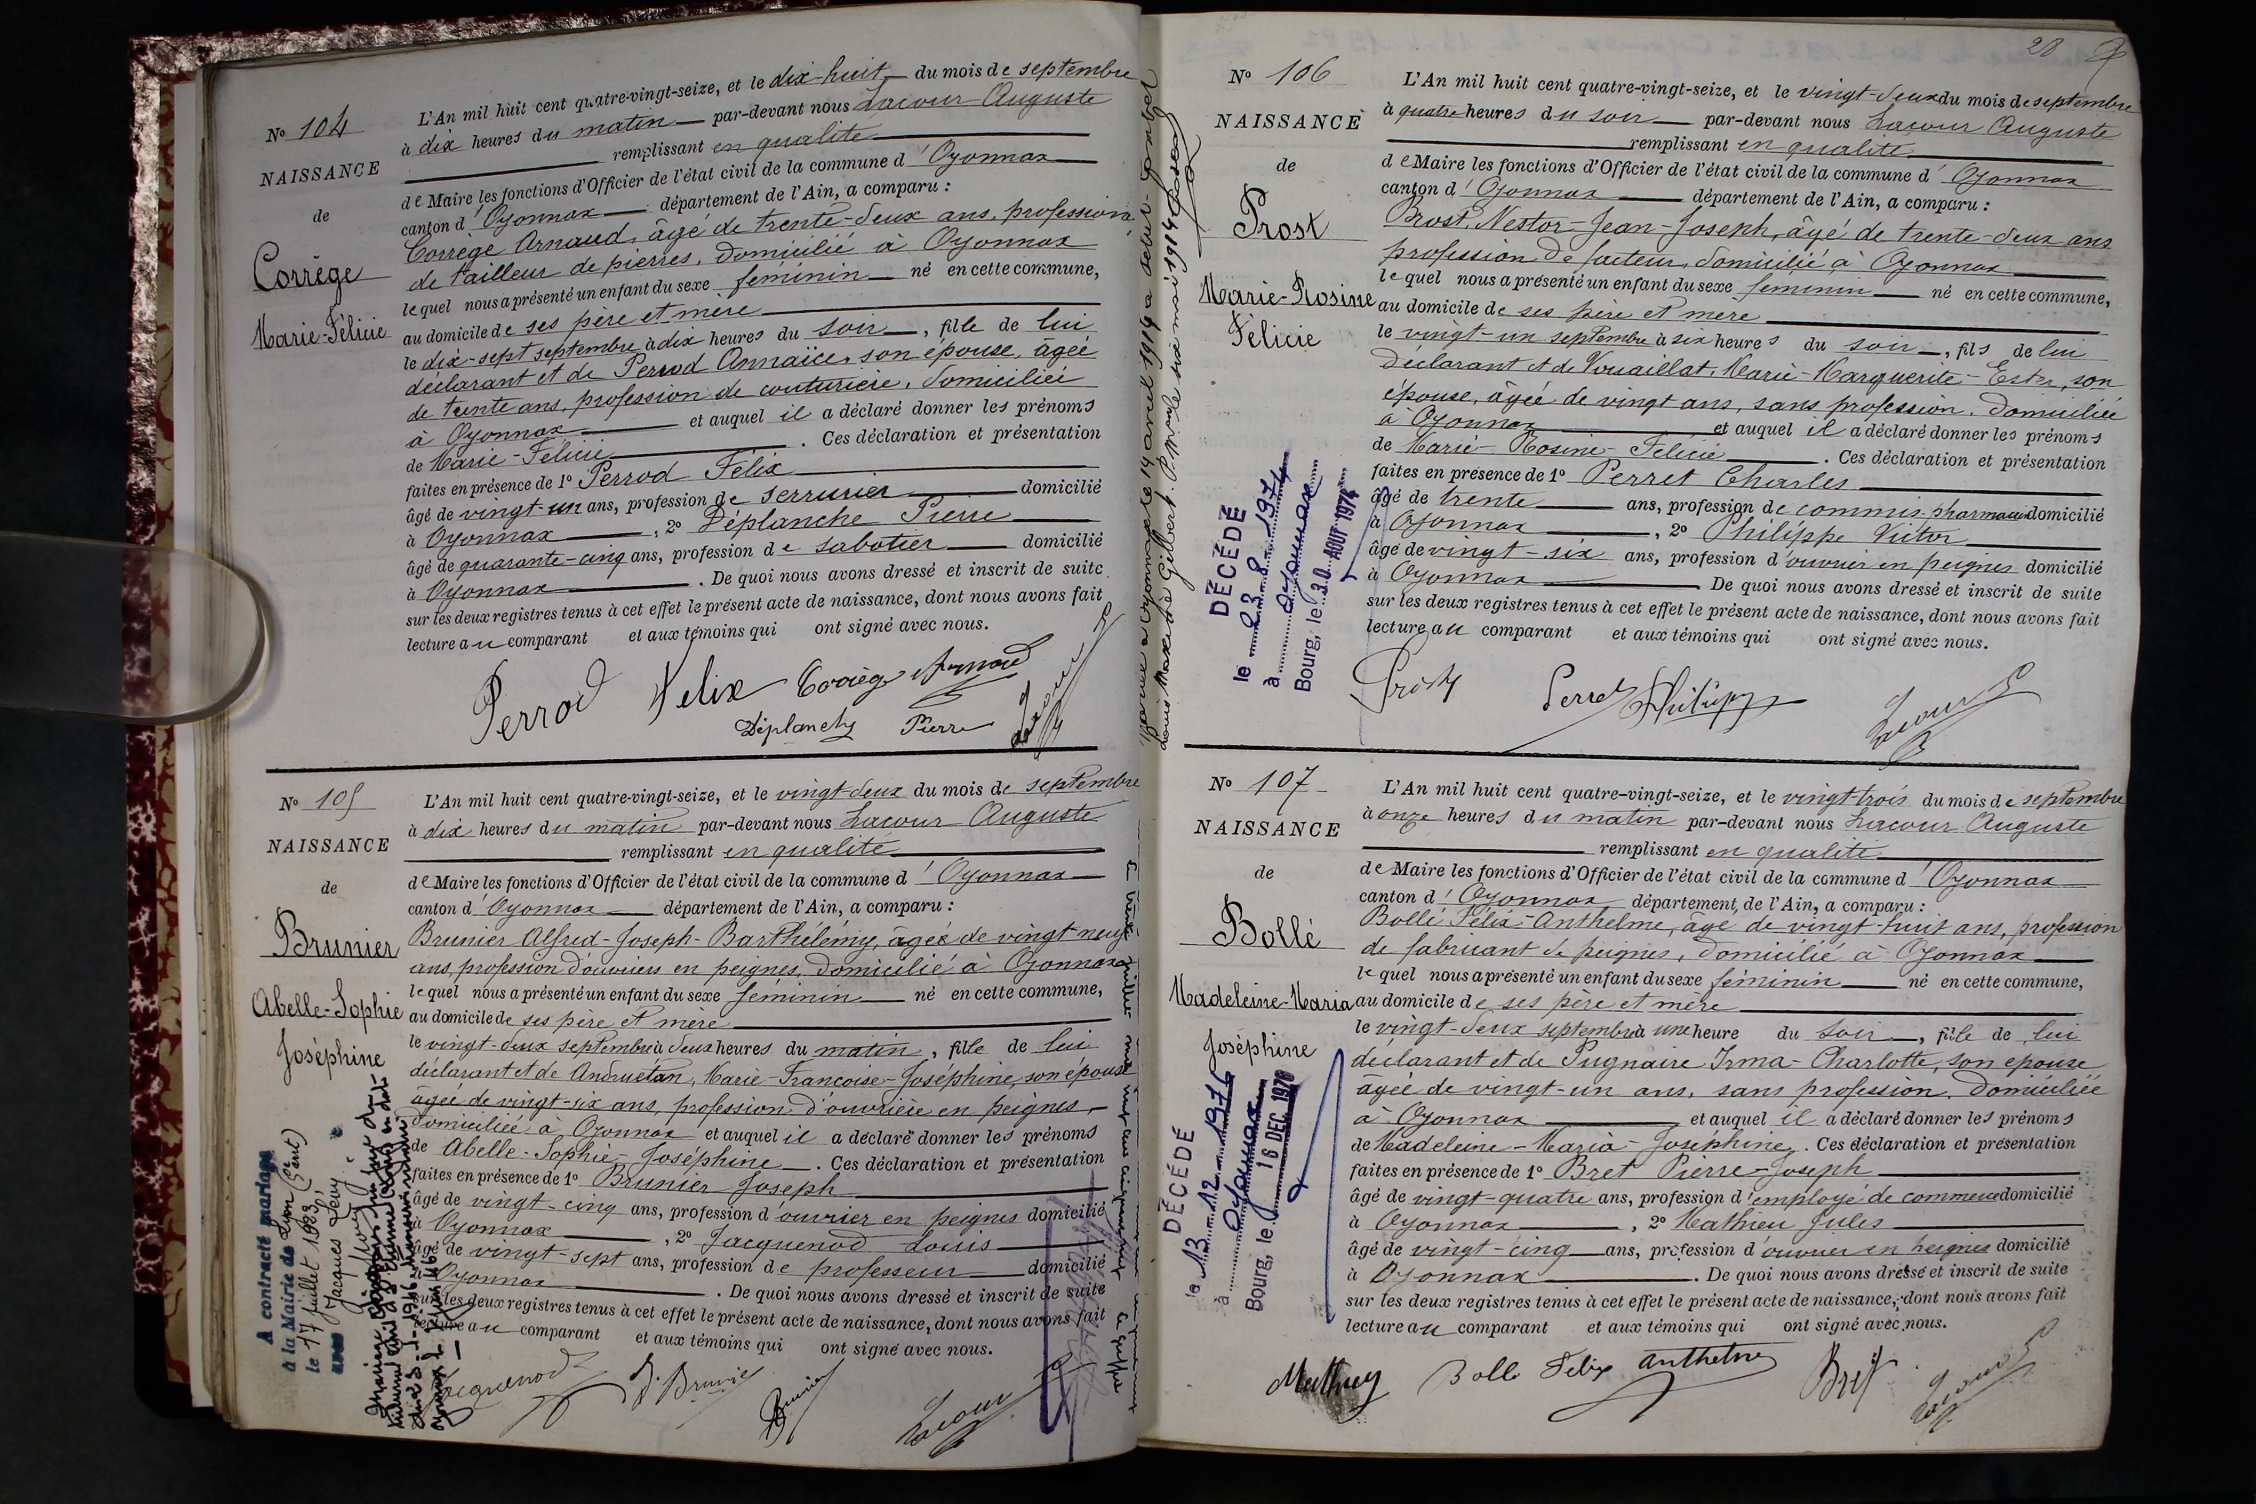 No 104
NAISSANCE
de
Corrège
Marie-Félicie
L'An mil huit cent quatre-vingt-seize, et le dix-huit du mois de septembre
à dix heures du matin par-devant nous Lacour Auguste
remplissant en qualité
de Maire les fonctions d'Officier de l'état civil de la commune d'Oyonnax
canton d'Oyonnax département de l'Ain, a comparu :
Corrège Arnaud, âgé de trente-deux ans, profession
de tailleur de pierres, domicilié à Oyonnax
lequel nous a présenté un enfant du sexe féminin né en cette commune,
au domicile de ses père et mère
le dix-sept septembre à dix heures du soir, fille de lui
déclarant et de Perrod Annaïce, son épouse, âgée
de trente ans, profession de couturière, domiciliée
à Oyonnax et auquel il a déclaré donner les prénoms
de Marie-Félicie. Ces déclaration et présentation
faites en présence de 1º Perrod Félix
âgé de vingt-un ans, profession de serrurier domicilié
à Oyonnax, 2º Déplanche Pierre
âgé de quarante-cinq ans, profession de sabotier domicilié
à Oyonnax. De quoi nous avons dressé et inscrit de suite
sur les deux registres tenus à cet effet le présent acte de naissance, dont nous avons fait
lecture au comparant et aux témoins qui ont signé avec nous.
Perrod Felix Corrège Arnaud
Déplanche Pierre Lacour
No 105
NAISSANCE
de
Brunier
Abelle-Sophie
Joséphine
A contracté mariage
à la Mairie de Lyon
le 17 juillet 1923,
avec Jacques Lévy
L'An mil huit cent quatre-vingt-seize, et le vingt-deux du mois de septembre
à dix heures du matin par-devant nous Lacour Auguste
remplissant en qualité
de Maire les fonctions d'Officier de l'état civil de la commune d'Oyonnax
canton d'Oyonnax département de l'Ain, a comparu :
Brunier Alfred-Joseph-Barthélémy, âgé de vingt neuf
ans, profession d'ouvriers en peignes, domicilié à Oyonnax
lequel nous a présenté un enfant du sexe féminin né en cette commune,
au domicile de ses père et mère
le vingt-deux septembre à deux heures du matin, fille de lui
déclarant et de Andruétan, Marie-Françoise-Joséphine, son épouse
âgée de vingt-six ans, profession d'ouvrière en peignes,
domiciliée à Oyonnax et auquel il a déclaré donner les prénoms
de Abelle-Sophie-Joséphine. Ces déclaration et présentation
faites en présence de 1º Brunier Joseph
âgé de vingt-cinq ans, profession d'ouvrier en peignes domicilié
à Oyonnax, 2º Jacquenod Louis
âgé de vingt-sept ans, profession de professeur domicilié
à Oyonnax. De quoi nous avons dressé et inscrit de suite
sur les deux registres tenus à cet effet le présent acte de naissance, dont nous avons fait
lecture au comparant et aux témoins qui ont signé avec nous.
Jacquenod J. Brunier Brunier Lacour
28
No 106
NAISSANCE
de
Prost
Marie-Rosine
Félicie
DÉCÉDÉ
le 23.8.1974
à Oyonnax
Bourg, le 30 AOUT 1974
L'An mil huit cent quatre-vingt-seize, et le vingt-deux du mois de septembre
à quatre heures du soir par-devant nous Lacour Auguste
remplissant en qualité
de Maire les fonctions d'Officier de l'état civil de la commune d'Oyonnax
canton d'Oyonnax département de l'Ain, a comparu :
Prost, Nestor-Jean-Joseph, âgé de trente-deux ans
profession de facteur, domicilié à Oyonnax
lequel nous a présenté un enfant du sexe féminin né en cette commune,
au domicile de ses père et mère
le vingt-un septembre à six heures du soir, fils de lui
déclarant et de Vouaillat, Marie-Marguerite-Ester, son
épouse, âgée de vingt ans, sans profession, domiciliée
à Oyonnax et auquel il a déclaré donner les prénoms
de Marie-Rosine-Félicie. Ces déclaration et présentation
faites en présence de 1º Perret Charles
âgé de trente ans, profession de commis pharmacien domicilié
à Oyonnax, 2º Philippe Victor
âgé de vingt-six ans, profession d'ouvrier en peignes domicilié
à Oyonnax De quoi nous avons dressé et inscrit de suite
sur les deux registres tenus à cet effet le présent acte de naissance, dont nous avons fait
lecture au comparant et aux témoins qui ont signé avec nous.
Prost Perret Philippe Lacour
No 107
NAISSANCE
de
Bollé
Madeleine-Maria
Joséphine
DÉCÉDÉ
le 13.12.1976
à Oyonnax
Bourg, le 16 DEC. 1976
L'An mil huit cent quatre-vingt-seize, et le vingt-trois du mois de septembre
à onze heures du matin par-devant nous Lacour Auguste
remplissant en qualité
de Maire les fonctions d'Officier de l'état civil de la commune d'Oyonnax
canton d'Oyonnax département de l'Ain, a comparu :
Bollé Félix-Anthelme, âgé de vingt-huit ans, profession
de fabricant de peignes, domicilié à Oyonnax
lequel nous a présenté un enfant du sexe féminin né en cette commune,
au domicile de ses père et mère
le vingt-deux septembre à une heure du soir, fille de lui
déclarant et de Pugnaire Irma-Charlotte, son épouse
âgée de vingt-un ans, sans profession, domiciliée
à Oyonnax et auquel il a déclaré donner les prénoms
de Madeleine-Maria-Joséphine. Ces déclaration et présentation
faites en présence de 1º Bret Pierre-Joseph
âgé de vingt-quatre ans, profession d'employé de commerce domicilié
à Oyonnax, 2º Mathieu Jules
âgé de vingt-cinq ans, profession d'ouvrier en peignes domicilié
à Oyonnax. De quoi nous avons dressé et inscrit de suite
sur les deux registres tenus à cet effet le présent acte de naissance, dont nous avons fait
lecture au comparant et aux témoins qui ont signé avec nous.
Bollé Félix Anthelme Bret Lacour